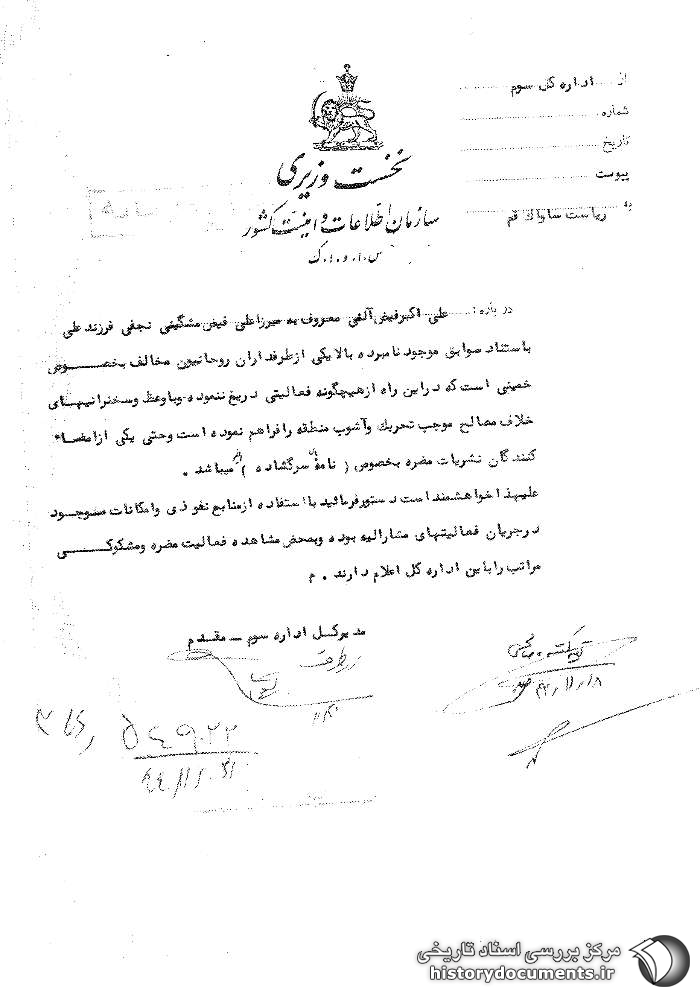 از اداره کل سوم
شماره
تاریخ
پیوست
به ریاست ساواک قم
نخست وزیری
سازمان اطلاعات و امنیت کشور
س.ا.و.ا.ک
درباره: علی اکبر فیض آلنی معروف به میرزاعلی فیض مشگینی نجفی فرزند علی
باستناد سوابق موجود نامبرده بالا یکی از طرفداران روحانیون مخالف بخصوص
خمینی است که در این راه از هیچگونه فعالیتی دریغ ننموده و با وعظ و سخنرانیهای
خلاف مصالح موجب تحریک و آشوب منطقه را فراهم نموده است و حتی یکی از امضاء
کنندگان نشریات مضره بخصوص (نامه سرگشاده) میباشد.
علیهذا خواهشمند است دستور فرمائید با استفاده از منابع نفوذی و امکانات موجود
در جریان فعالیتهای مشارالیه بوده و بمحض مشاهده فعالیت مضره و مشکوکی
مراتب را باین اداره کل اعلام دارند. م
مدیر کل اداره سوم - مقدم
مرکز بررسی اسناد تاریخی
historydocuments.ir